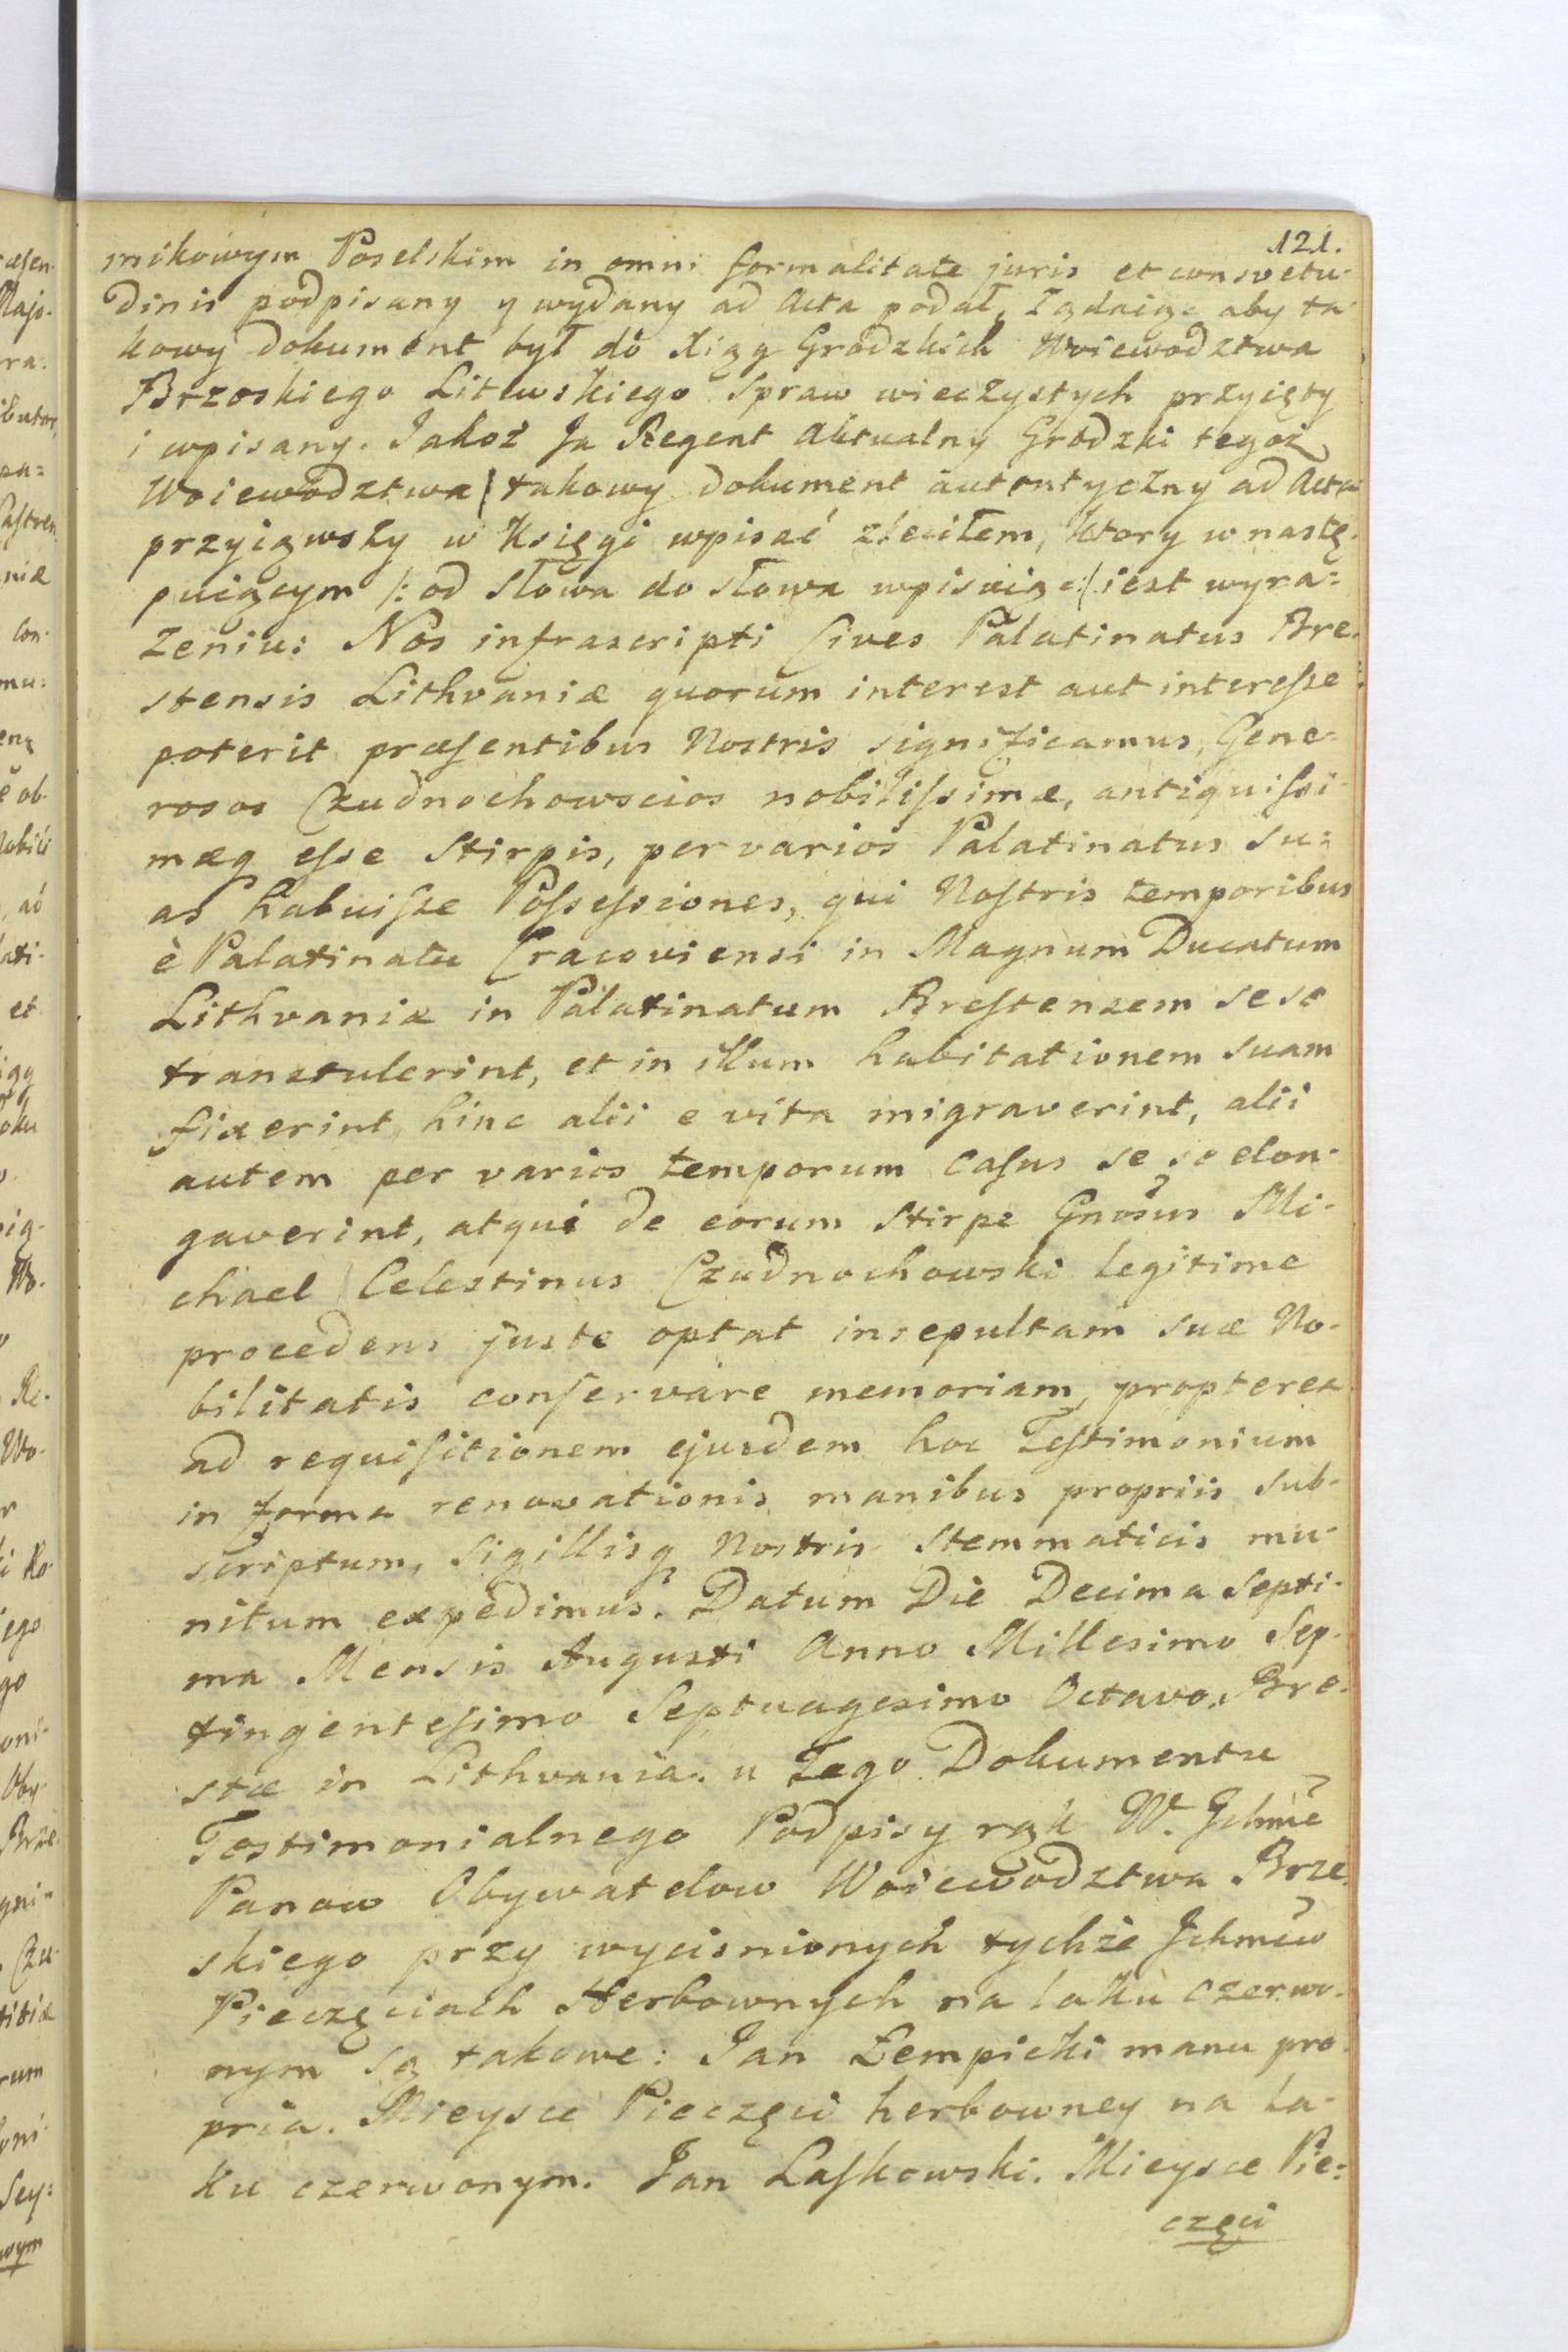 121.
mikowym Poselskim in omni formalitate juris et consvetu-
dinis podpisany y wydany ad Acta podał, Żądaiąc aby ta-
kowy dokument był do Xiąg Grodzkich Woiewodztwa
Brzeskiego Litewskiego Spraw wieczystych przyięty
i wpisany. Jakoż Ja Regent Aktualny Grodzki tegoż
Woiewodztwa takowy dokument autentyczny ad Acta
przyiąwszy w Księgi wpisać zleciłem, Ktory w nastę-
puiącym /: od słowa do słowa wpisuiąc :/ iest wyra=
żeniu: Nos infrascripti Cives Palatinatus Bre-
stensis Lithvaniæ quorum interest aut interesse
poterit præsentibus Nostris significamus, Gene-
rosos Czudnochowscios nobilissimæ, antiquissi-
mæq esse Stirpis, per varios Palatinatus su=
as habuisse Possessiones, qui Nostris temporibus
è Palatinatu Cracoviensi in Magnum Ducatum
Lithvaniæ in Palatinatum Brestensem sese
transtulerint, et in illum habitationem suam
fixerint, hinc alii e vita migraverint, alii
autem per varios temporum casus se se elon-
gaverint, atqui de eorum Stirpe Gnosus Mi-
chael Celestinus Czudnochowski legitime
procedens juste optat insepultam suæ No-
bilitatis conservare memoriam, propterea
ad requisitionem ejusdem hoc Testimonium
in forma renovationis manibus propriis sub-
scriptum, Sigillisq Nostris Stemmaticis mu-
nitum expedimus. Datum Die Decima Septi-
ma Mensis Augusti Anno Millesimo Sep-
tingentesimo Septuagesimo Octavo. Bre-
stæ in Lithvania. u Tego Dokumentu
Testimonialnego Podpisy rąk W. Ichmć
Panow Obywatelow Woiewodztwa Brze-
skiego przy wycisnionych tychże Ichmćw
Pieczęciach Herbownych na laku czerwo-
nym są takowe: Jan Łempicki manu pro-
pria. Mieysce Pieczęci herbowney na la-
ku czerwonym. Jan Laskowski. Mieysce Pie=
częci